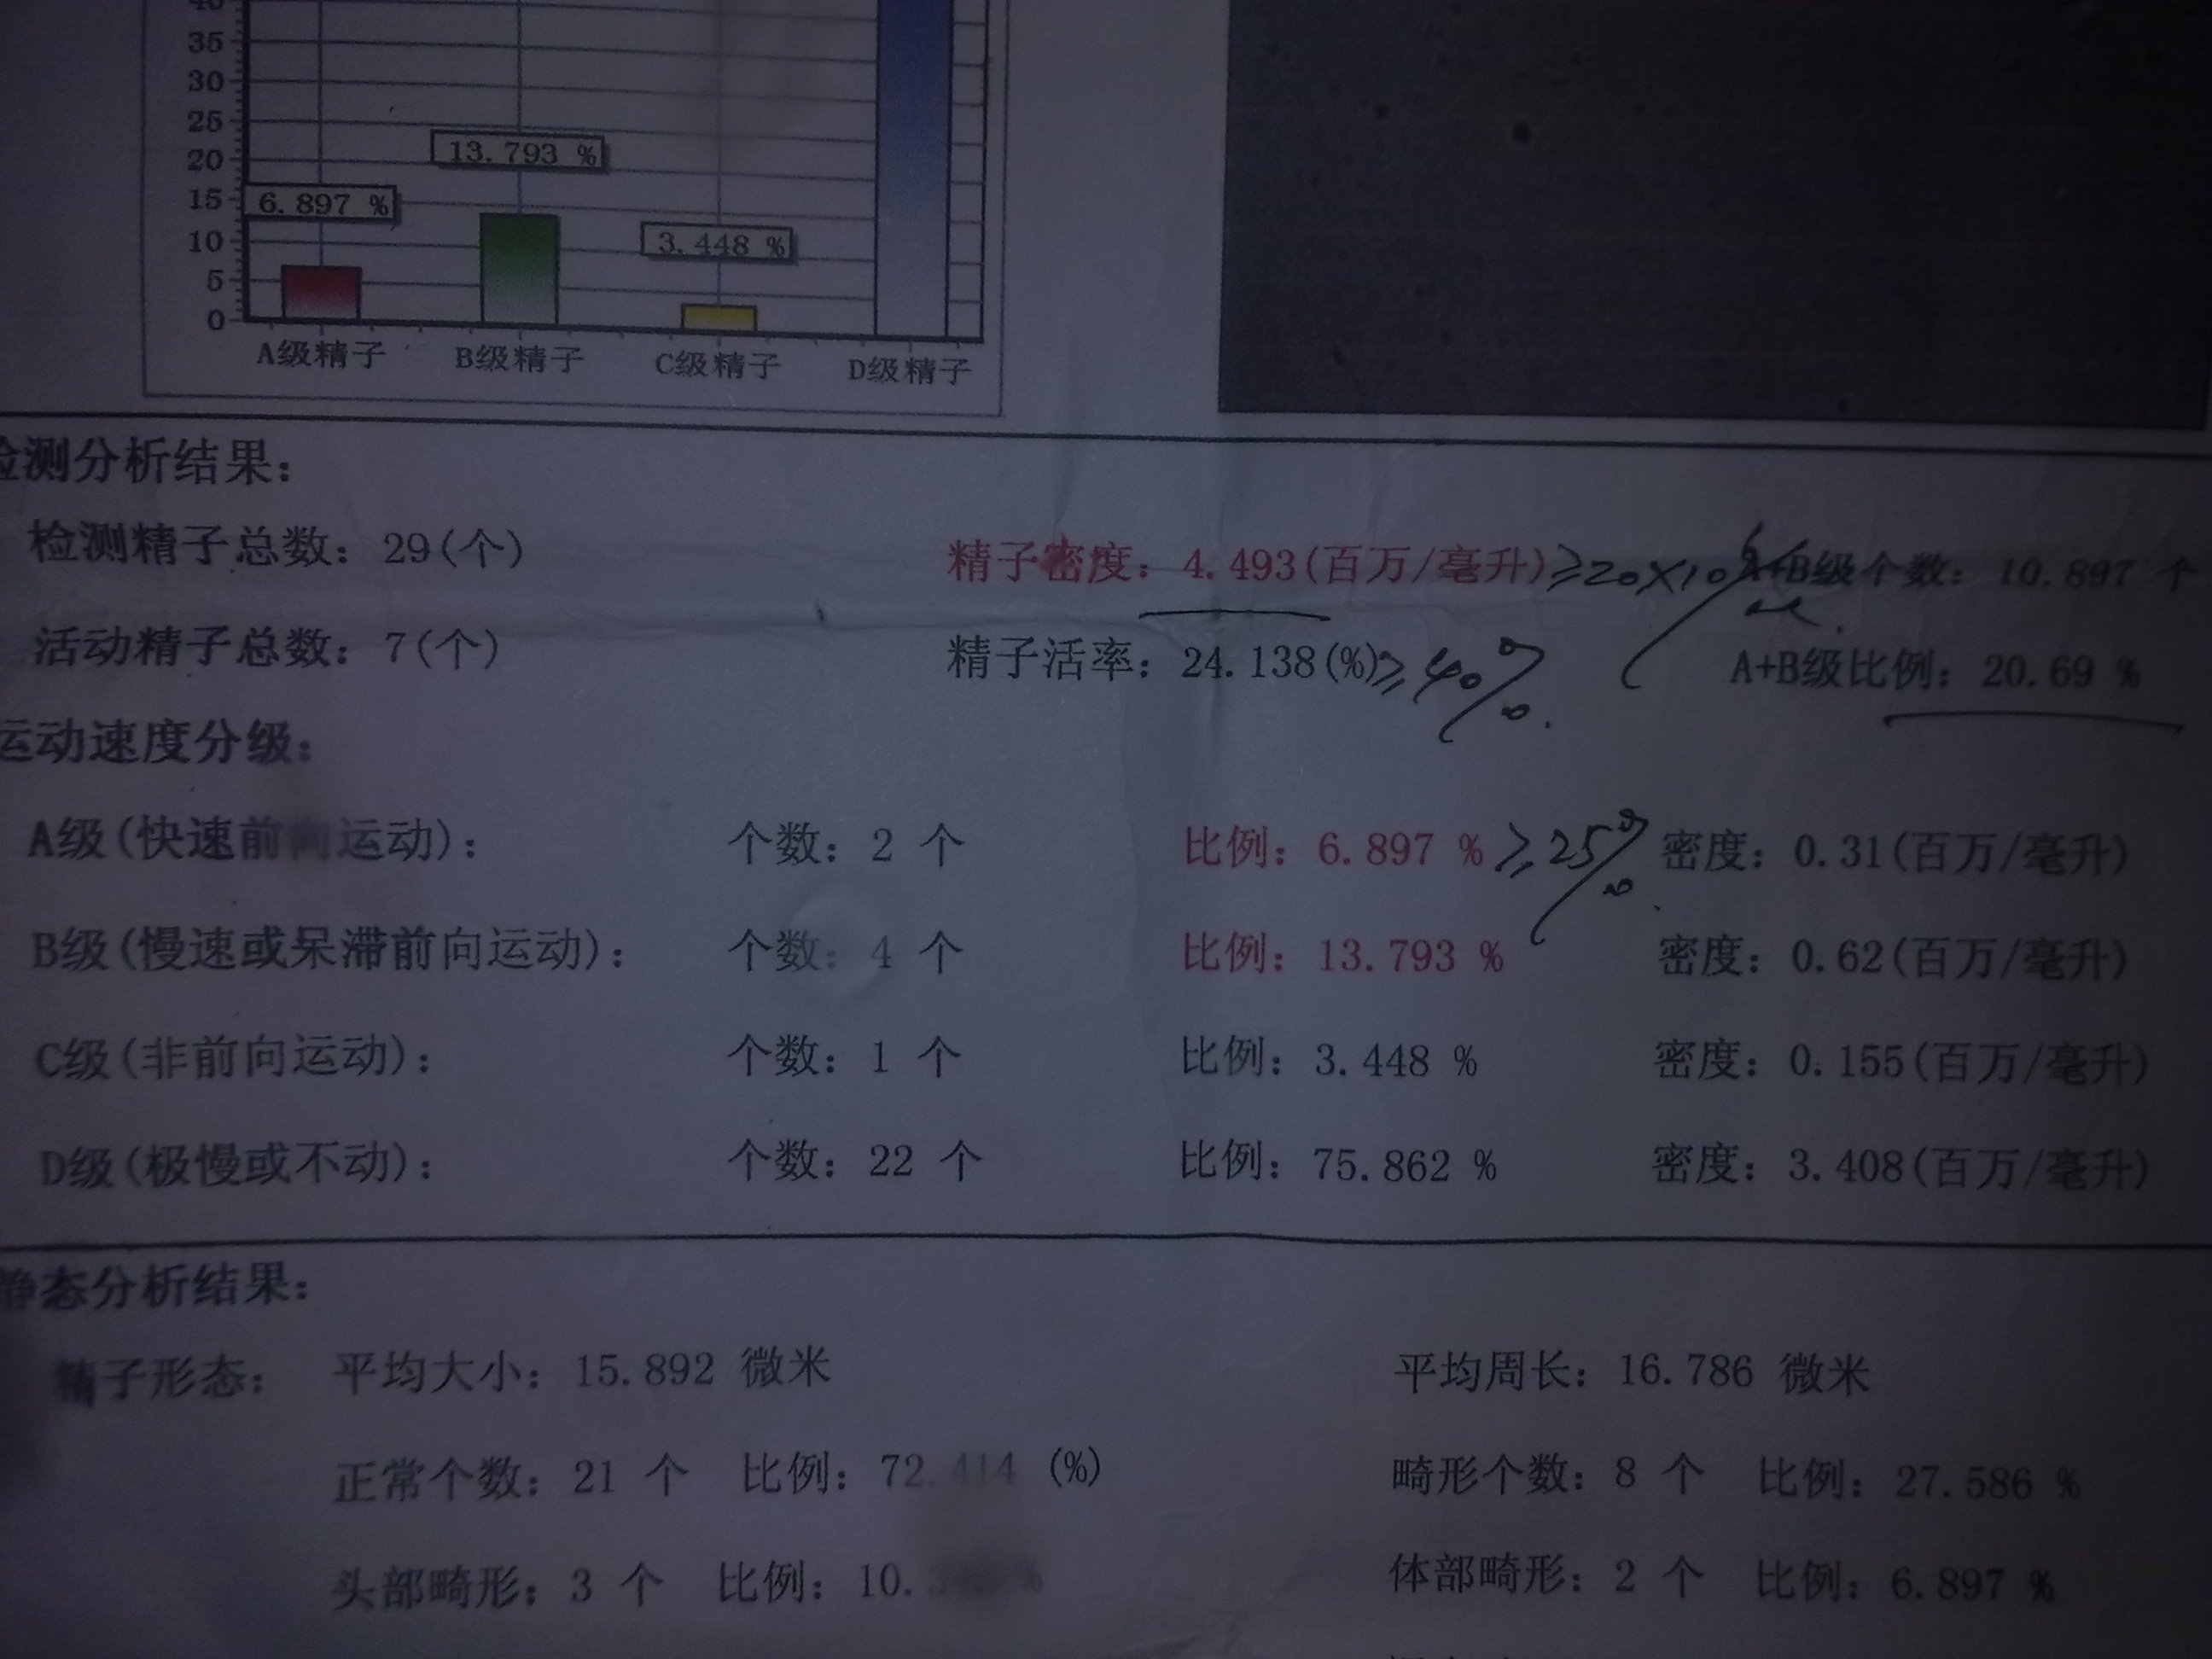 40
35
30
25
20
15
10
5
0
13.793 %
6.897 %
3.448 %
A级精子 B级精子 C级精子 D级精子
检测分析结果:
检测精子总数: 29(个) 精子密度: 4.493(百万/毫升) ≥20×10⁶/ml. A+B级个数: 10.897 个
活动精子总数: 7(个) 精子活率: 24.138(%) ≥40%. A+B级比例: 20.69 %
运动速度分级:
A级(快速前向运动): 个数: 2 个 比例: 6.897 % ≥25% 密度: 0.31(百万/毫升)
B级(慢速或呆滞前向运动): 个数: 4 个 比例: 13.793 % 密度: 0.62(百万/毫升)
C级(非前向运动): 个数: 1 个 比例: 3.448 % 密度: 0.155(百万/毫升)
D级(极慢或不动): 个数: 22 个 比例: 75.862 % 密度: 3.408(百万/毫升)
静态分析结果:
精子形态: 平均大小: 15.892 微米 平均周长: 16.786 微米
正常个数: 21 个 比例: 72.414 (%) 畸形个数: 8 个 比例: 27.586 %
头部畸形: 3 个 比例: 10. % 体部畸形: 2 个 比例: 6.897 %